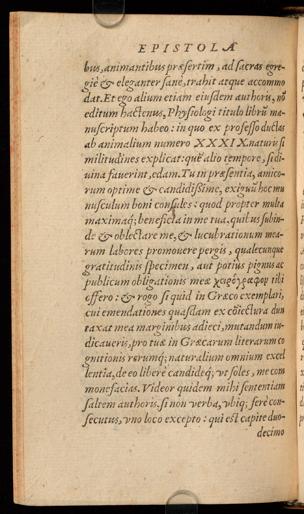 EPISTOLA
bus, animantibus præsertim, ad sacras egre-
giè & eleganter sanè, trahit atque accommo
dat. Et ego alium etiam eiusdem authoris, nō
editum hactenus, Physiologi titulo librū ma-
nuscriptum habeo: in quo ex professo ductas
ab animalium numero XXXIX. naturis si
militudines explicat: quē alio tempore, si di-
uina fauerint, edam. Tu in præsentia, amico-
rum optime & candidissime, exiguū hoc mu
nusculum boni consules: quod propter multa
maximaq; beneficia in me tua, quibus subin-
de & oblectare me, & lucubrationum mea-
rum labores promouere pergis, qualecunque
gratitudinis specimen, aut potius pignus ac
publicum obligationis meæ χειρόγραφον tibi
offero: & rogo si quid in Græco exemplari,
cui emendationes quasdam ex cōiectura dun
taxat mea marginibus adieci, mutandum iu-
dicaueris, pro tua in Græcarum literarum co
gnitionis rerumq; naturalium omnium excel
lentia, de eo liberè candideq; vt soles, me com
monefacias. Videor quidem mihi sententiam
saltem authoris, si non verba, vbiq; ferè con-
secutus, vno loco excepto: qui est capite duo-
decimo